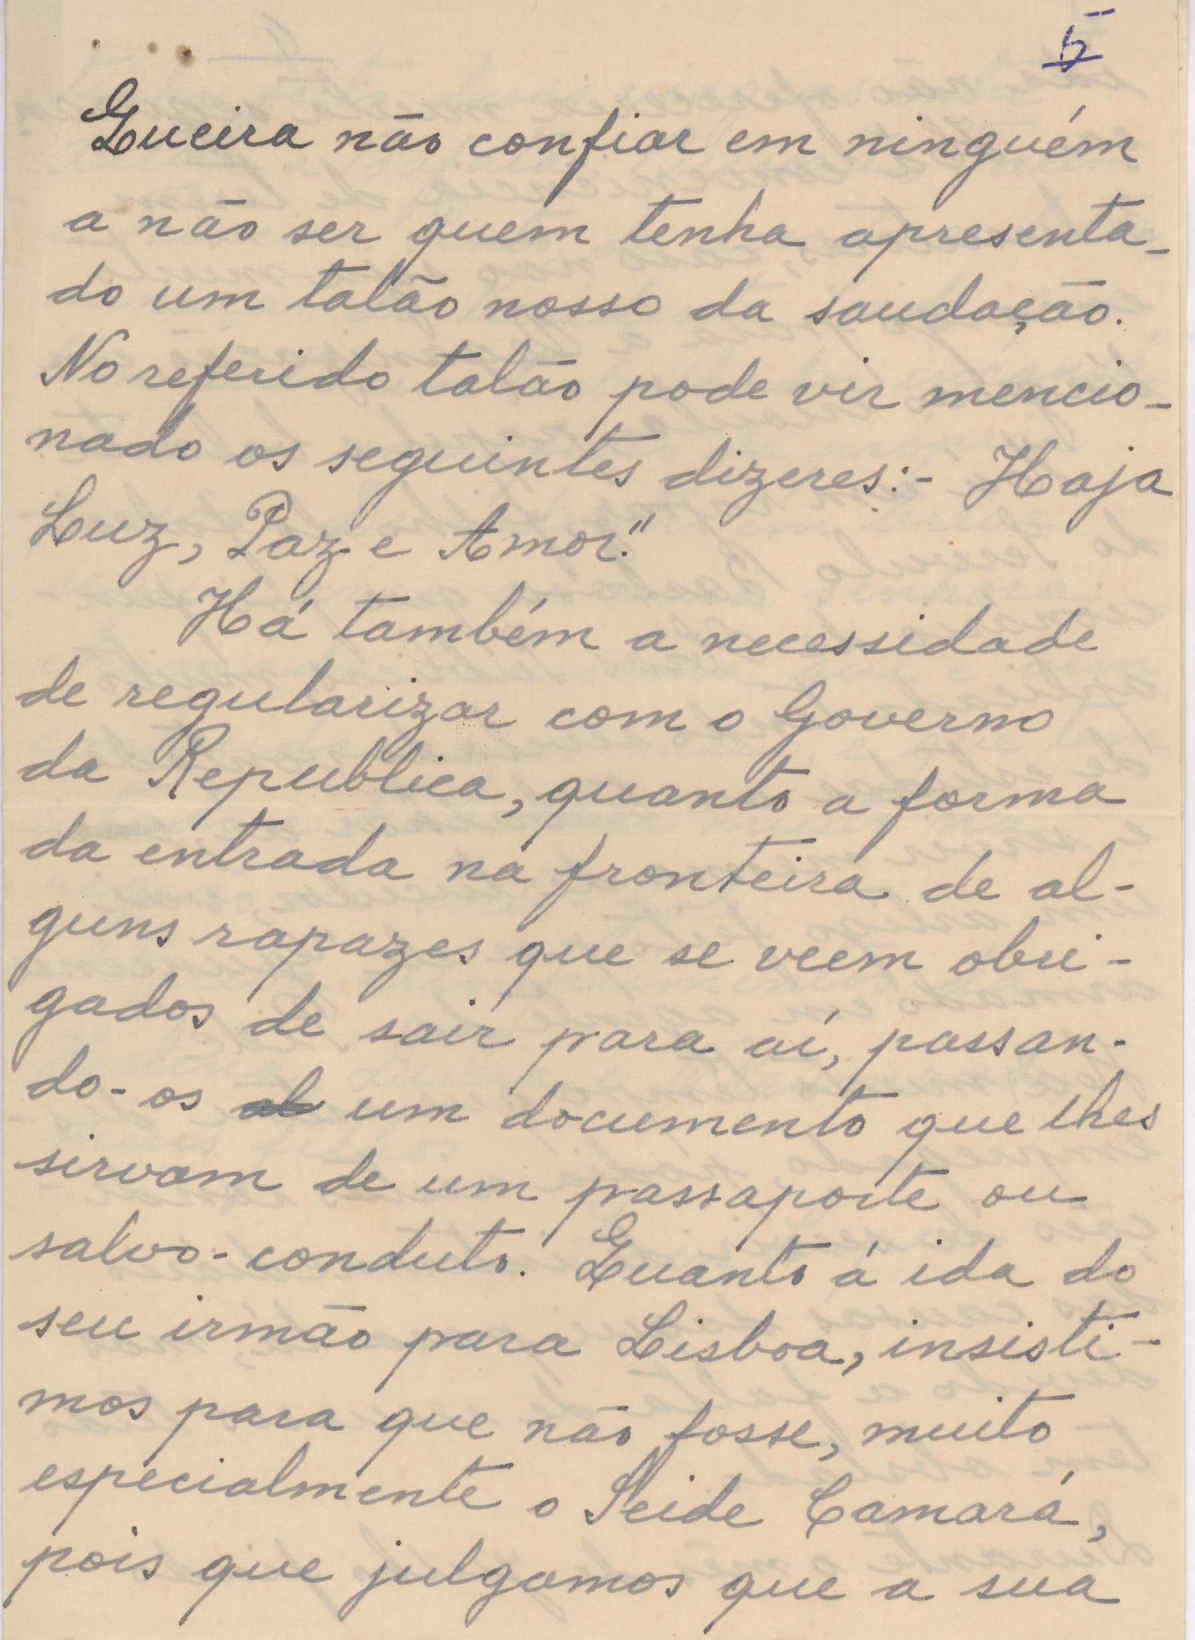 5
Queira não confiar em ninguém
a não ser quem tenha apresenta-
do um talão nosso da saudação.
No referido talão pode vir mencio-
nado os seguintes dizeres:- Haja
Luz, Paz e Amor."
Há também a necessidade
de regularizar com o Governo
da Republica, quanto a forma
da entrada na fronteira de al-
guns rapazes que se veem obri-
gados de sair para aí, passan-
do-os um documento que lhes
sirvam de um passaporte ou
salvo-conduto. Quanto á ida do
seu irmão para Lisboa, insisti-
mos para que não fosse, muito
especialmente o Seide Camará,
pois que julgamos que a sua